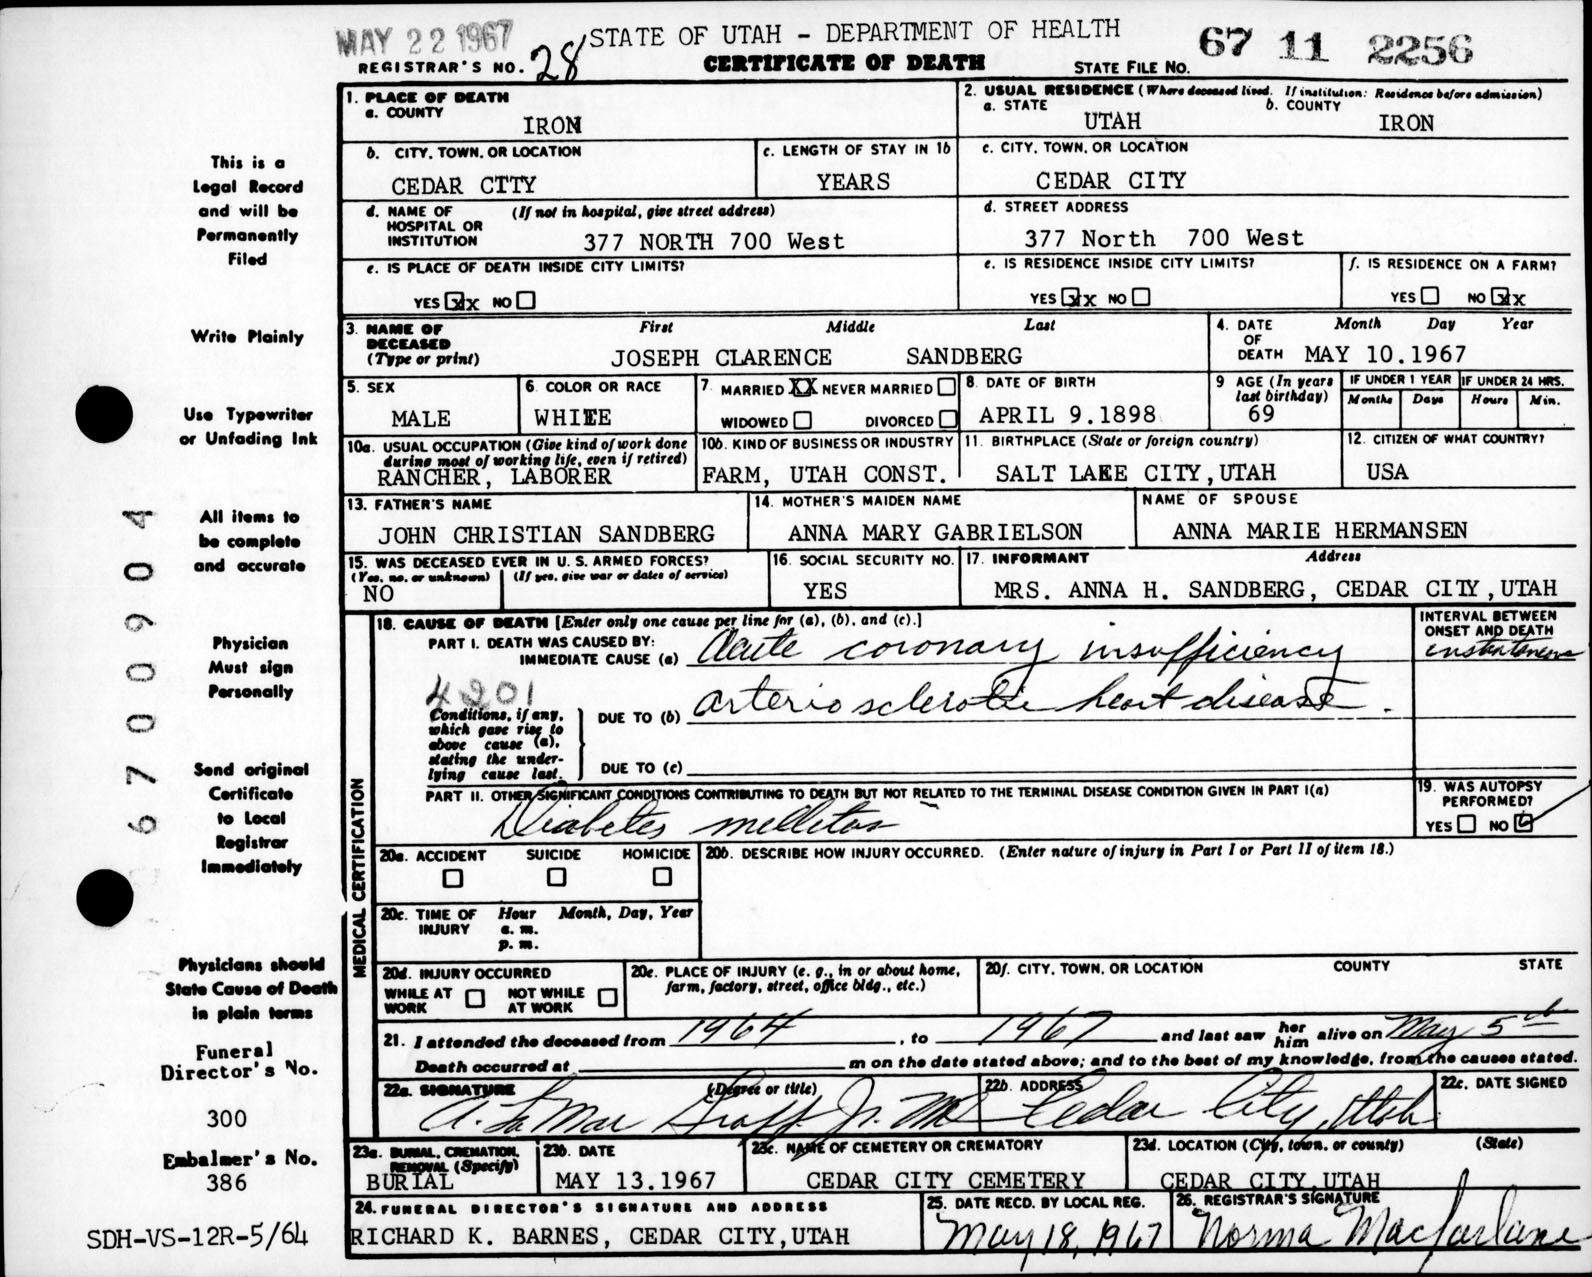 MAY 22 1967
STATE OF UTAH - DEPARTMENT OF HEALTH
67 11 2256
REGISTRAR'S NO. 28
CERTIFICATE OF DEATH
STATE FILE NO.
1. PLACE OF DEATH
a. COUNTY
IRON
2. USUAL RESIDENCE (Where deceased lived. If institution: Residence before admission)
a. STATE
UTAH
b. COUNTY
IRON
b. CITY, TOWN, OR LOCATION
CEDAR CTTY
c. LENGTH OF STAY IN 1b
YEARS
c. CITY, TOWN, OR LOCATION
CEDAR CITY
d. NAME OF (If not in hospital, give street address)
HOSPITAL OR
INSTITUTION
377 NORTH 700 West
d. STREET ADDRESS
377 North 700 West
e. IS PLACE OF DEATH INSIDE CITY LIMITS?
YES xx NO
e. IS RESIDENCE INSIDE CITY LIMITS?
YES xx NO
f. IS RESIDENCE ON A FARM?
YES NO xx
3. NAME OF
DECEASED
(Type or print)
First Middle Last
JOSEPH CLARENCE SANDBERG
4. DATE
OF
DEATH
Month Day Year
MAY 10.1967
5. SEX
MALE
6. COLOR OR RACE
WHITE
7. MARRIED XX NEVER MARRIED
WIDOWED DIVORCED
8. DATE OF BIRTH
APRIL 9.1898
9 AGE (In years
last birthday)
69
IF UNDER 1 YEAR
Months Days
IF UNDER 24 HRS.
Hours Min.
10a. USUAL OCCUPATION (Give kind of work done
during most of working life, even if retired)
RANCHER, LABORER
10b. KIND OF BUSINESS OR INDUSTRY
FARM, UTAH CONST.
11. BIRTHPLACE (State or foreign country)
SALT LAKE CITY,UTAH
12. CITIZEN OF WHAT COUNTRY?
USA
13. FATHER'S NAME
JOHN CHRISTIAN SANDBERG
14. MOTHER'S MAIDEN NAME
ANNA MARY GABRIELSON
NAME OF SPOUSE
ANNA MARIE HERMANSEN
15. WAS DECEASED EVER IN U. S. ARMED FORCES?
(Yes, no, or unknown) (If yes, give war or dates of service)
NO
16. SOCIAL SECURITY NO.
YES
17. INFORMANT Address
MRS. ANNA H. SANDBERG, CEDAR CITY,UTAH
MEDICAL CERTIFICATION
18. CAUSE OF DEATH [Enter only one cause per line for (a), (b), and (c).]
PART I. DEATH WAS CAUSED BY:
IMMEDIATE CAUSE (a) Acute coronary insufficiency
INTERVAL BETWEEN
ONSET AND DEATH
4201
Conditions, if any,
which gave rise to
above cause (a),
stating the under-
lying cause last.
DUE TO (b) arterio sclerotic heart disease.
DUE TO (c)
PART II. OTHER SIGNIFICANT CONDITIONS CONTRIBUTING TO DEATH BUT NOT RELATED TO THE TERMINAL DISEASE CONDITION GIVEN IN PART I(a)
Diabetes mellitus
19. WAS AUTOPSY
PERFORMED?
YES NO
20a. ACCIDENT SUICIDE HOMICIDE
20b. DESCRIBE HOW INJURY OCCURRED. (Enter nature of injury in Part I or Part II of item 18.)
20c. TIME OF Hour Month, Day, Year
INJURY a. m.
p. m.
20d. INJURY OCCURRED
WHILE AT NOT WHILE
WORK AT WORK
20e. PLACE OF INJURY (e. g., in or about home,
farm, factory, street, office bldg., etc.)
20f. CITY, TOWN, OR LOCATION COUNTY STATE
21. I attended the deceased from 1964, to 1967 and last saw her him alive on May 5th
Death occurred at m on the date stated above; and to the best of my knowledge, from the causes stated.
22a. SIGNATURE (Degree or title)
A. LaMar Graff Jr. MD
22b. ADDRESS
Cedar City, Utah
22c. DATE SIGNED
23a. BURIAL, CREMATION,
REMOVAL (Specify)
BURIAL
23b. DATE
MAY 13.1967
23c. NAME OF CEMETERY OR CREMATORY
CEDAR CITY CEMETERY
23d. LOCATION (City, town, or county) (State)
CEDAR CITY,UTAH
24. FUNERAL DIRECTOR'S SIGNATURE AND ADDRESS
RICHARD K. BARNES, CEDAR CITY,UTAH
25. DATE RECD. BY LOCAL REG.
May 18, 1967
26. REGISTRAR'S SIGNATURE
Norma Macfarlane
This is a
Legal Record
and will be
Permanently
Filed
Write Plainly
Use Typewriter
or Unfading Ink
All items to
be complete
and accurate
Physician
Must sign
Personally
Send original
Certificate
to Local
Registrar
Immediately
Physicians should
State Cause of Death
in plain terms
Funeral
Director's No.
300
Embalmer's No.
386
SDH-VS-12R-5/64
6700904